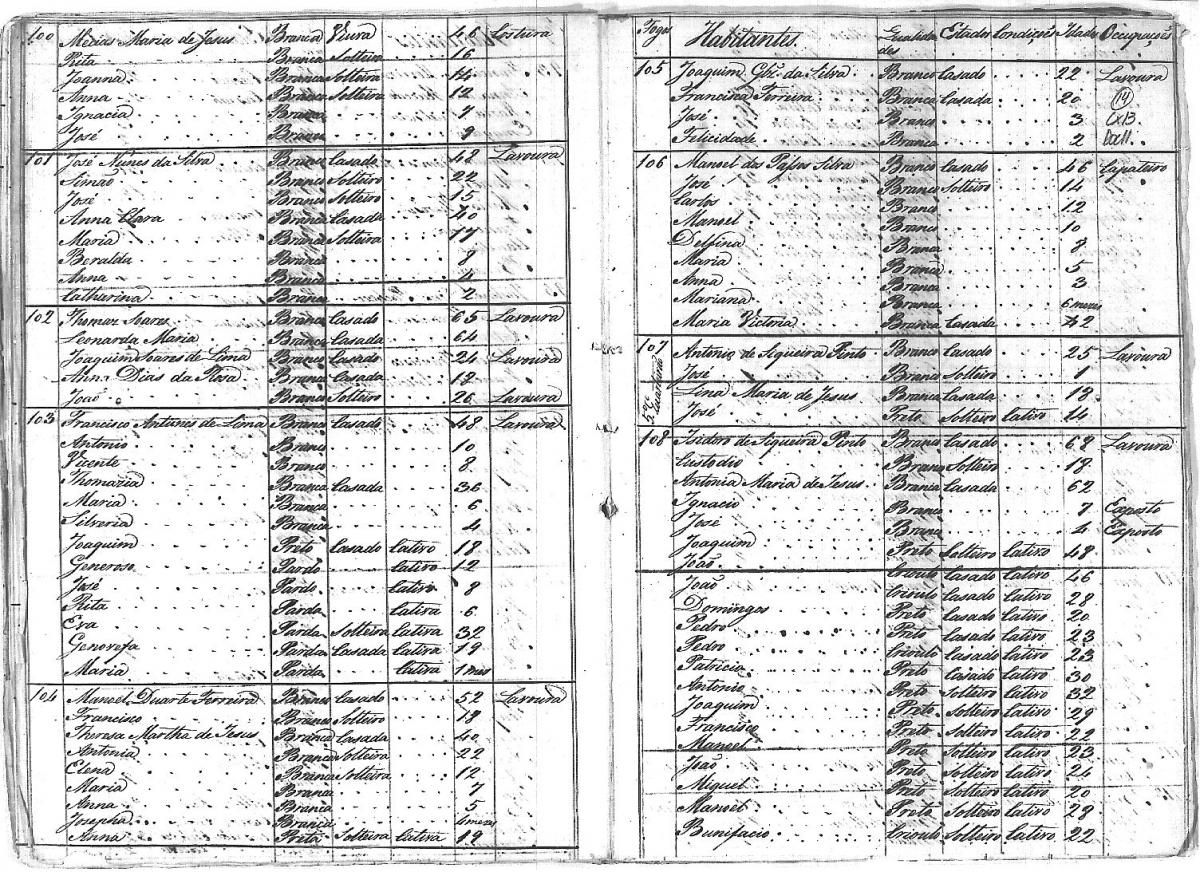 100 Mecias Maria de Jesus Branca Viuva 46 Costura
Rita Branca Solteira 16
Joanna Branca Solteira 14
Anna Branca Solteira 12
Ignacia Branca 7
José Branco 9
101 José Nunes da Silva Branco Casado 48 Lavoura
Simão Branco Solteiro 22
José Branco Solteiro 15
Anna Clara Branca Casada 40
Maria Branca Solteira 17
Beralda Branca 8
Anna Branca 4
Catharina Branca 2
102 Thomaz Soares Branco Casado 65 Lavoura
Leonarda Maria Branca Casada 64
Joaquim Soares de Lima Branco Casado 24 Lavoura
Anna Dias da Rosa Branca Casada 18
João Branco Solteiro 26 Lavoura
103 Francisco Antunes de Lima Branco Casado 48 Lavoura
Antonio Branco 10
Vicente Branco 8
Thomazia Branca Casada 36
Maria Branca 6
Silveria Branca 4
Joaquim Preto Casado Cativo 18
Generoso Pardo Cativo 12
José Pardo Cativo 8
Rita Parda Cativa 6
Eva Parda Solteira Cativa 32
Genovefa Parda Casada Cativa 19
Maria Parda Cativa 1 mes
104 Manoel Duarte Ferreira Branco Casado 52 Lavoura
Francisco Branco Solteiro 18
Theresa Martha de Jesus Branca Casada 40
Antonia Branca Solteira 22
Elena Branca Solteira 12
Maria Branca 7
Anna Branca 5
Josepha Branca mezes
Anna Preta Solteira Cativa 19
Fogos Habitantes Qualidades Estados Condições Idades Occupações
105 Joaquim da Silva Branco Casado 22 Lavoura
Francisca Ferreira Branca Casada 20 14
José Branco 3 Cx13
Felicidade Branca 2 Doc11
106 Manoel de Silva Branco Casado 46 Çapateiro
José Branco Solteiro 14
Carlos Branco 12
Manoel Branco 10
Delfina Branca 8
Maria Branca 5
Anna Branca 3
Mariana Branca 6 mezes
Maria Victoria Branca Casada 42
107 Antonio de Siqueira Pinto Branco Casado 25 Lavoura
José Branco Solteiro 1
Lina Maria de Jesus Branca Casada 18
José Preto Solteiro Cativo 14
108 Isidoro de Siqueira Pinto Branco Casado 68 Lavoura
Custodio Branco Solteiro 18
Antonia Maria de Jesus Branca Casada 62
Ignacio Branco 7 Exposto
José Branco 4 Exposto
Joaquim Preto Solteiro Cativo 48
João Crioulo Casado Cativo 46
João Crioulo Casado Cativo 28
Domingos Preto Casado Cativo 20
Pedro Preto Casado Cativo 23
Pedro Crioulo Casado Cativo 23
Patricio Preto Casado Cativo 30
Antonio Preto Solteiro Cativo 32
Joaquim Preto Solteiro Cativo 29
Francisco Preto Solteiro Cativo 22
Manoel Preto Solteiro Cativo 23
João Preto Solteiro Cativo 24
Miguel Preto Solteiro Cativo 20
Manoel Preto Solteiro Cativo 28
Bunifacio Crioulo Solteiro Cativo 22